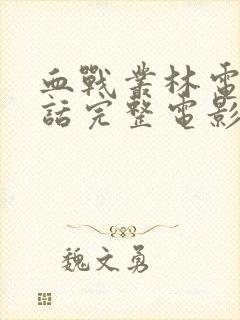 血戰業林電
話完整電影
魏文勇